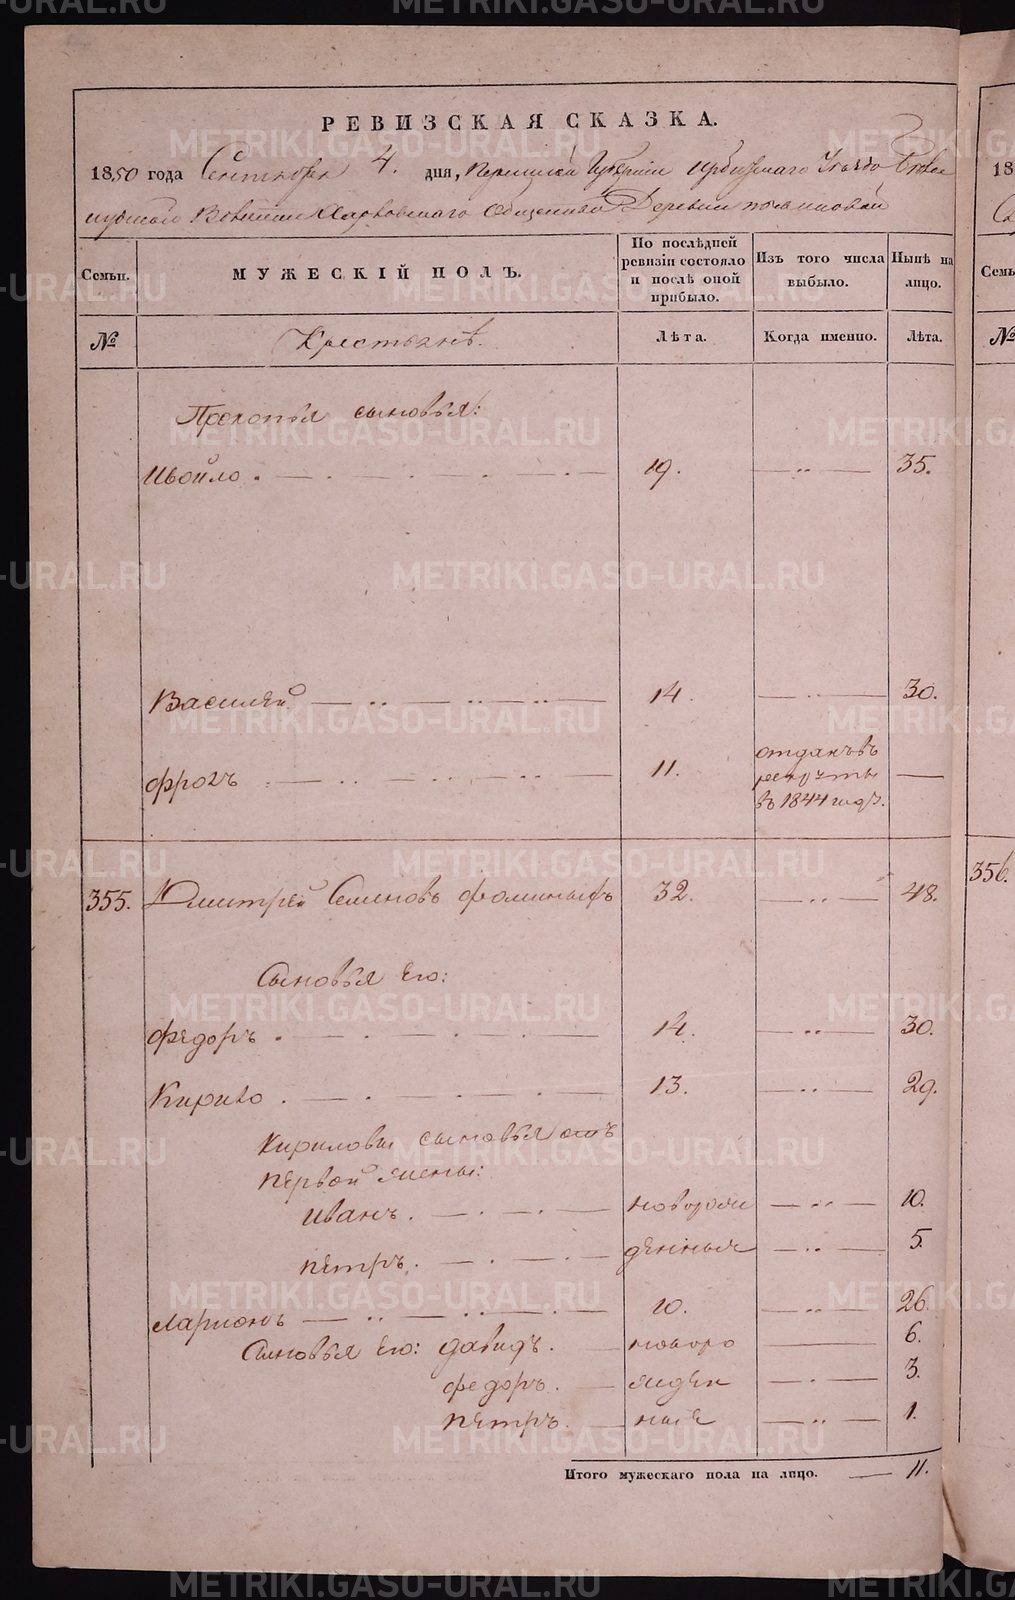 РЕВИЗСКАЯ СКАЗКА.
1850 года Сентября 4. дня, Пермской Губерніи Ирбитскаго Уезда
Волости Харловскаго Общества Деревни
Семьи. МУЖЕСКІЙ ПОЛЪ. По послѣдней ревизіи состояло и послѣ оной прибыло. Изъ того числа выбыло. Нынѣ на лицо. Семь
№ Крестьянѣ. Лѣта. Когда именно. Лѣта. №
Прокопья сыновья:
Ивойло. 19. 35.
Василей 14. 30.
Фролъ 11. отданъ въ рекруты въ 1844 годъ.
355. Дмитрей Семеновъ Фоминыхъ 32. 48. 356.
Сыновья Его:
Федоръ. 14. 30.
Кирило. 13. 29.
Кириловы сыновья отъ
первой жены:
Иванъ. новорож 10.
Петръ. денныя 5.
Ларионъ 10. 26.
Сыновья Его: Давидъ. новоро 6.
Федоръ. жден 3.
Петръ. ные 1.
Итого мужескаго пола на лицо. 11.
METRIKI.GASO-URAL.RU